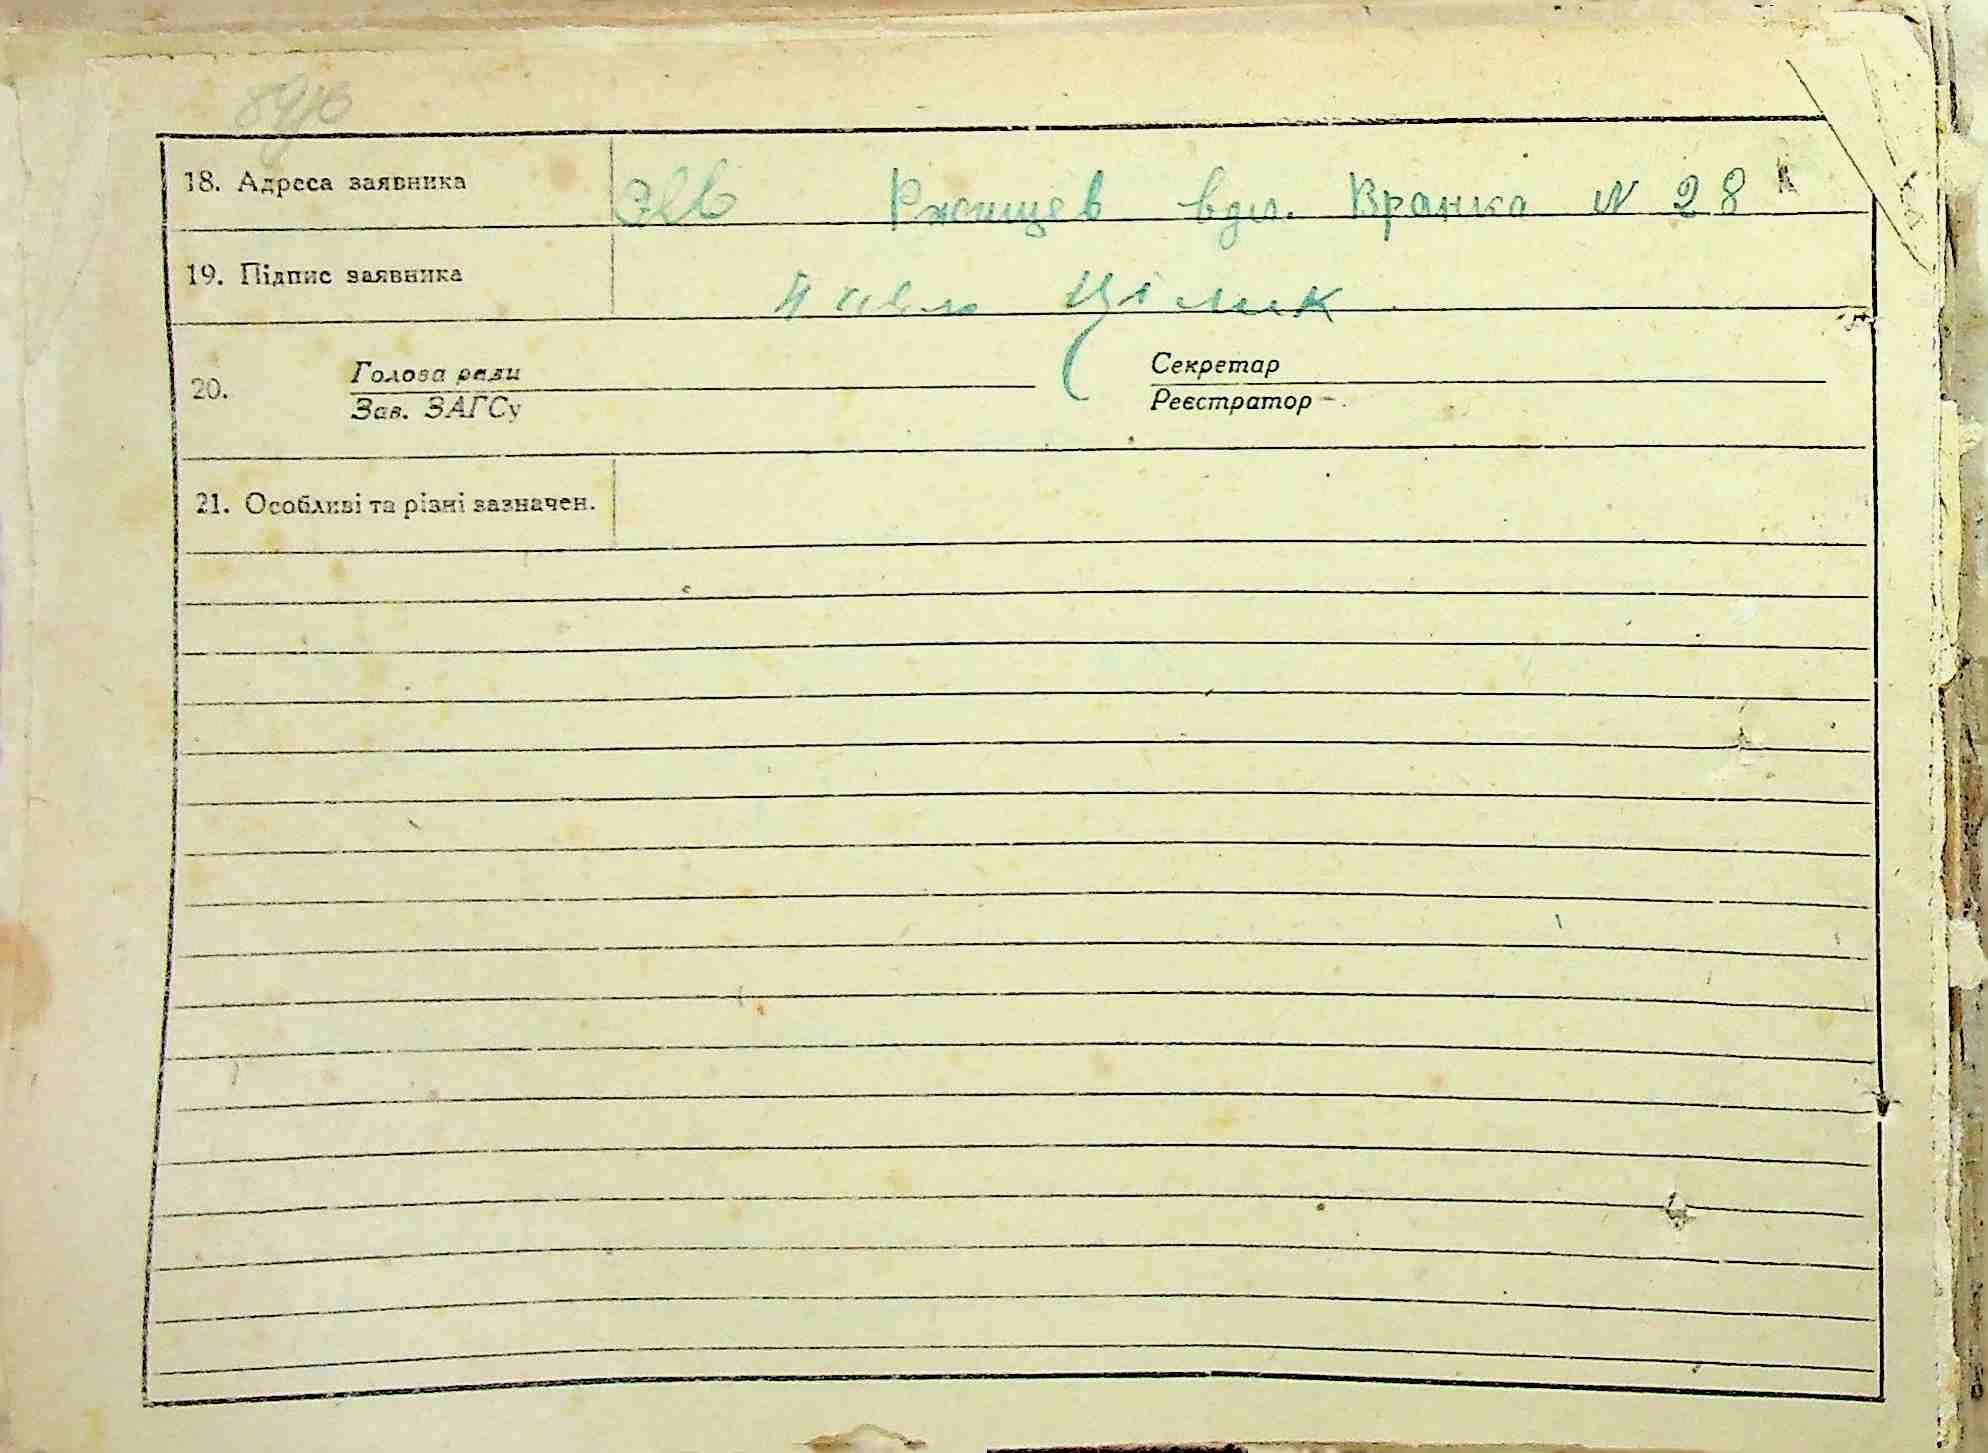 18. Адреса заявника Ржищев вул. Вранка N 28
19. Підпис заявника Павло Цімик
20. Голова ради Секретар
Зав. ЗАГСу Реєстратор
21. Особливі та різні зазначен.